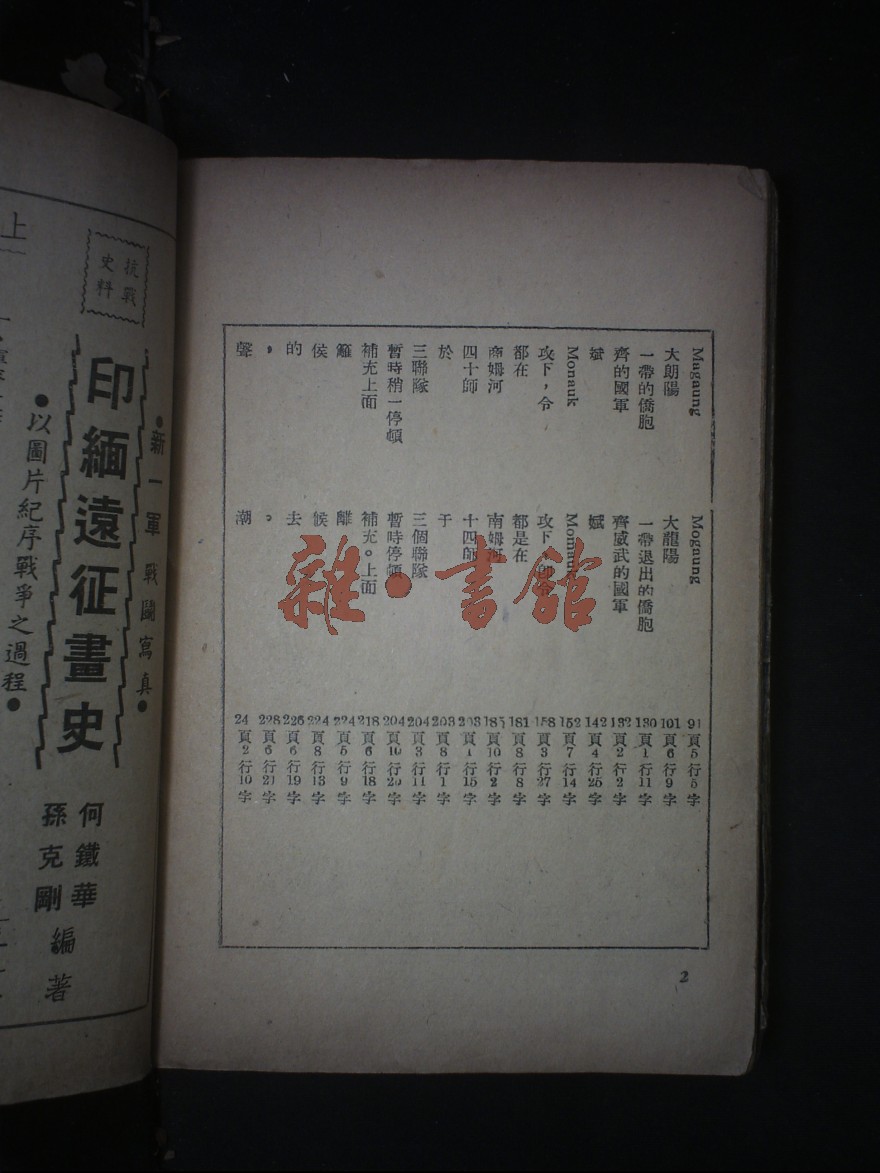 Magaung Mogaung 91頁5行5字
大朗陽 大龍陽 101頁6行9字
一帶的僑胞 一帶退出的僑胞 130頁1行11字
齊的國軍 齊威武的國軍 132頁2行2字
斌 斌 142頁4行25字
Monauk 152頁7行14字
攻下，令 攻下 158頁3行27字
都在 都是在 181頁8行8字
南姆河 185頁10行2字
四十師 十四師 203頁1行15字
於 于 203頁8行1字
三聯隊 三個聯隊 204頁3行11字
暫時稍一停頓 暫時停頓 204頁10行20字
補充上面 補充。上面 218頁6行18字
籬 離 224頁5行9字
侯 候 224頁8行13字
的 去 226頁6行19字
， 。 228頁6行27字
聲 潮 24頁2行10字
2
雜·書館
●新一軍戰鬪寫真●
印緬遠征畫史
●以圖片紀序戰爭之過程●
何鐵華
孫克剛
編著
抗戰
史料
上